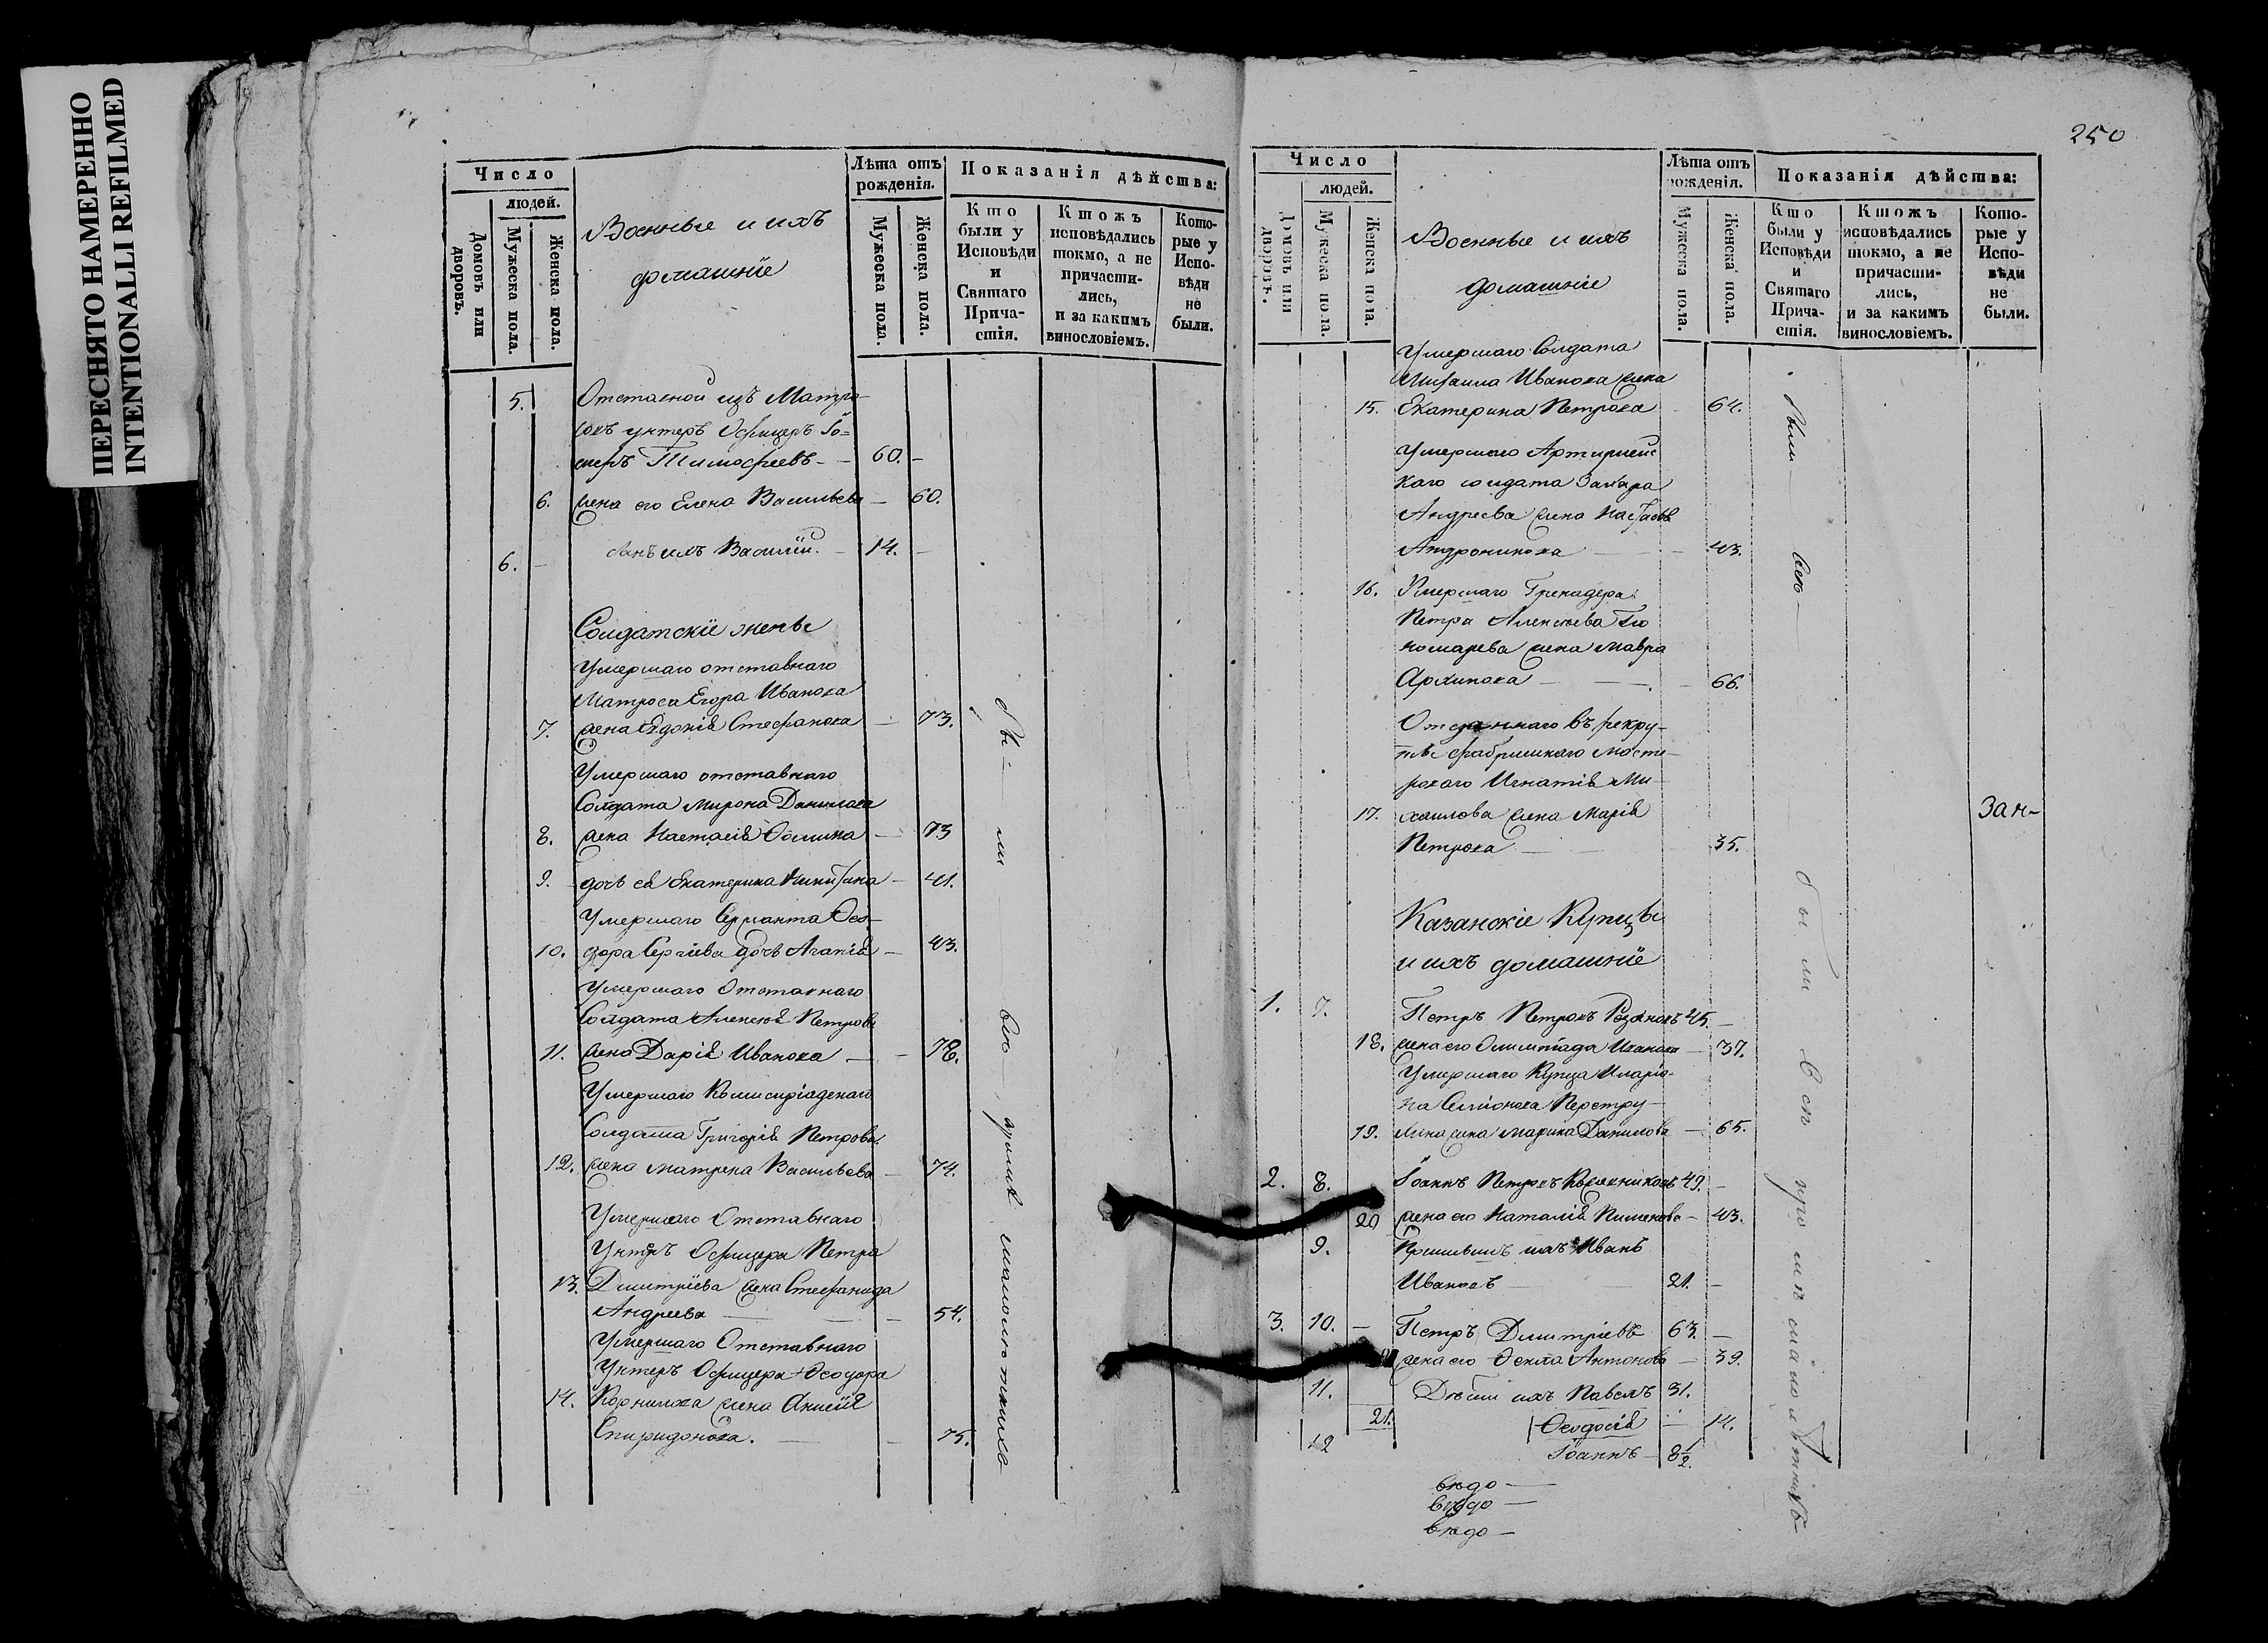 ПЕРЕСНЯТО НАМЕРЕННО
INTENTIONALLI REFILMED
Число
людей.
Домовъ или дворовъ.
Мужеска пола.
Женска пола.
Военные и ихъ
домашніе
Лѣта отъ рожденія.
Мужеска пола.
Женска пола.
Показанія дѣйства:
Кто были у Исповѣди и Святаго Причастія.
Ктожъ исповѣдались токмо, а не причастились, и за какимъ винословіемъ.
Которые у Исповѣди не были.
5. Отставной изъ Матро-
совъ унтеръ Офицеръ
Тимофеевъ — 60. —
6. жена его Елена Васильева — 60.
6. — сынъ ихъ Василій. — 14. —
Солдатскіе жены
Умершаго отставнаго
Матроса Егора Иванова
7. жена Стефанова — 73.
Умершаго отставнаго
Солдата Мирона Данилова
8. жена Настасія — 73
9. дочь ея Екатерина — 41.
Умершаго Сержанта Ѳео-
10. дора Сергіева дочь Агапія — 43.
Умершаго Отставнаго
Солдата Алексея Петрова
11. жена Дарія Иванова — 78.
Умершаго
Солдата Григорія Петрова
12. жена Матрена Васильева — 74.
Умершаго Отставнаго
Унтеръ Офицера Петра
13. Димитріева жена Стефанида
Андреева — 54.
Умершаго Отставнаго
Унтеръ Офицера Ѳеодора
14. Корнилова жена
Спиридонова. — 75.
бы — ли — всѣ — кромѣ малолѣтнихъ
250
Число
людей.
Домовъ или дворовъ.
Мужеска пола.
Женска пола.
Военные и ихъ
домашніе
Лѣта отъ рожденія.
Мужеска пола.
Женска пола.
Показанія дѣйства:
Кто были у Исповѣди и Святаго Причастія.
Ктожъ исповѣдались токмо, а не причастились, и за какимъ винословіемъ.
Которые у Исповѣди не были.
Умершаго Солдата
Михаила Иванова жена
15. Екатерина Петрова — 64.
Умершаго
каго солдата Захара
Андреева жена
Андроникова — 43.
16. Умершаго Гренадера
Петра Алексѣева По
номарева жена Мавра
Архипова — 66.
Отданнаго въ рекру-
ты фабришнаго масте-
роваго Игнатія Ми-
17. хаилова жена Марія
Петрова — 35.
Зан-
Казанскіе Купцы
и ихъ домашніе
1. 7. Петръ Петровъ 45. —
18. жена его Олимпіада Иванова — 37.
Умершаго Купца Иларіо-
на Семіонова
19. жена Марина Данилова — 65.
2. 8. Іоаннъ Петровъ 49. —
20 жена его Наталія Пименова — 43.
9. ихъ Иванъ
Ивановъ 21. —
3. 10. — Петръ Димитріевъ 63. —
жена его Ѳекла Антонова — 39.
11. Дѣти ихъ Павелъ 31.
21. Ѳеодосія — 14.
12 Іоаннъ — 8½.
были всѣ
были всѣ кромѣ малолѣтнихъ